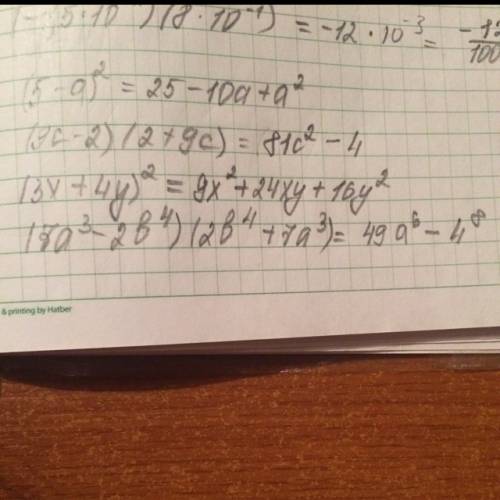 5 · 10 ) (8 · 10⁻¹) = -12 · 10⁻³ = -12/100
(5 - a)² = 25 - 10a + a²
(9c - 2) (2 + 9c) = 81c² - 4
(3x + 4y)² = 9x² + 24xy + 16y²
(7a³ - 2b⁴) (2b⁴ + 7a³) = 49a⁶ - 4⁸
& printing by Hatber